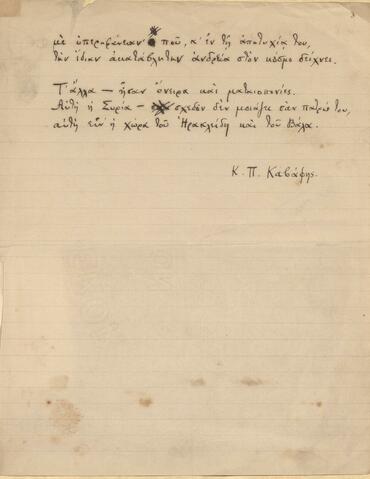 μὲ ὑπερηφάνειαν που, κ' ἐν τῇ ἀποτυχίᾳ του,
τὴν ἴδιαν ἀκατάβλητην ἀνδρεία στὸν κόσμο δείχνει.
Τ' ἄλλα — ἦσαν ὄνειρα καὶ ματαιοπονίες.
Αὐτὴ ἡ Συρία — σχεδὸν δὲν μοιάζει σὰν πατρίς του,
αὐτὴ εἶν' ἡ χώρα τοῦ Ἡρακλείδη καὶ τοῦ Βάλα.
Κ. Π. Καβάφης.